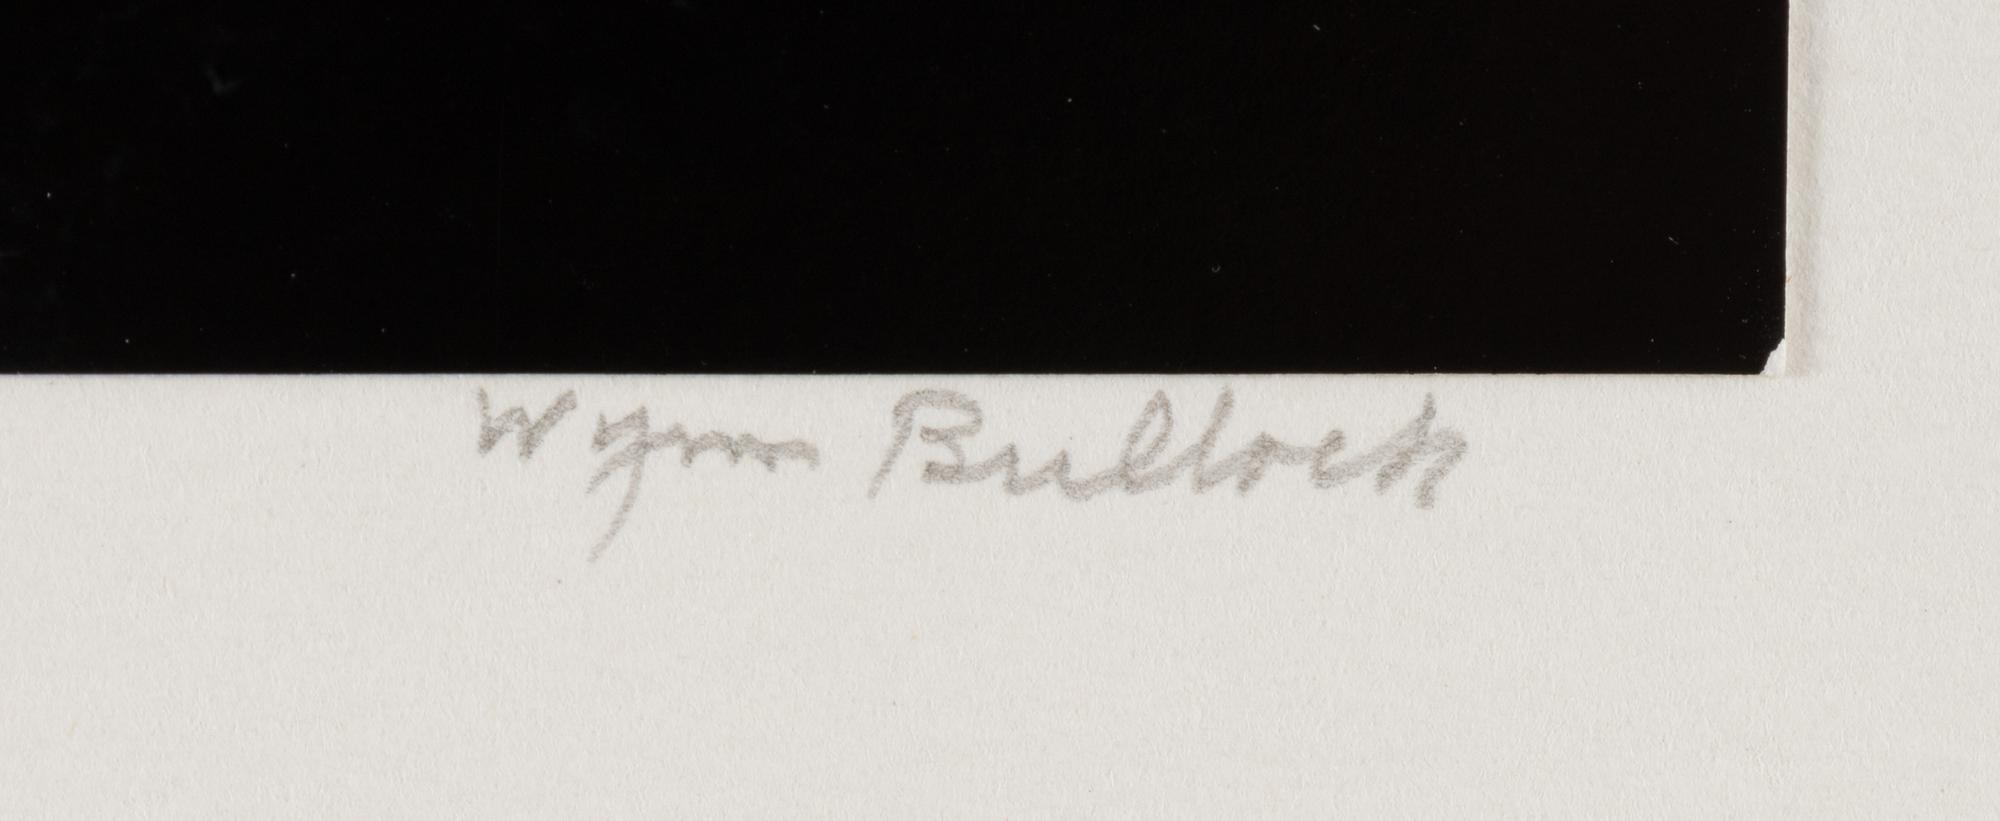 Wynn Bullock